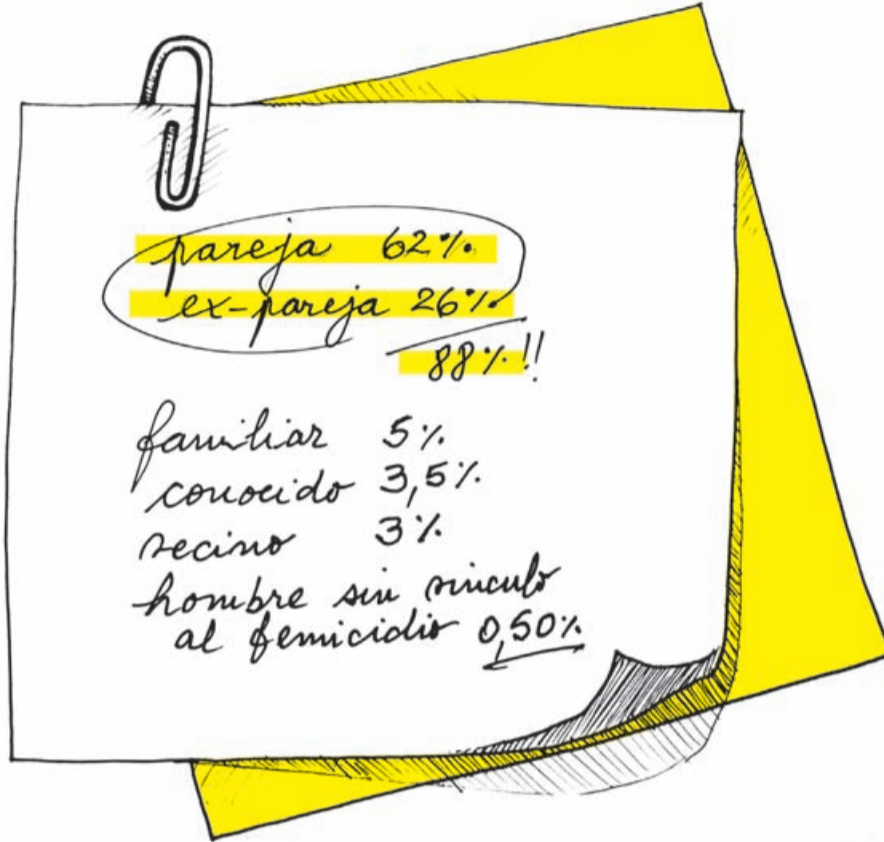 pareja 62%
ex-pareja 26%
88%!!
familiar 5%
conocido 3,5%
vecino 3%
hombre sin vinculo
al femicidio 0,50%